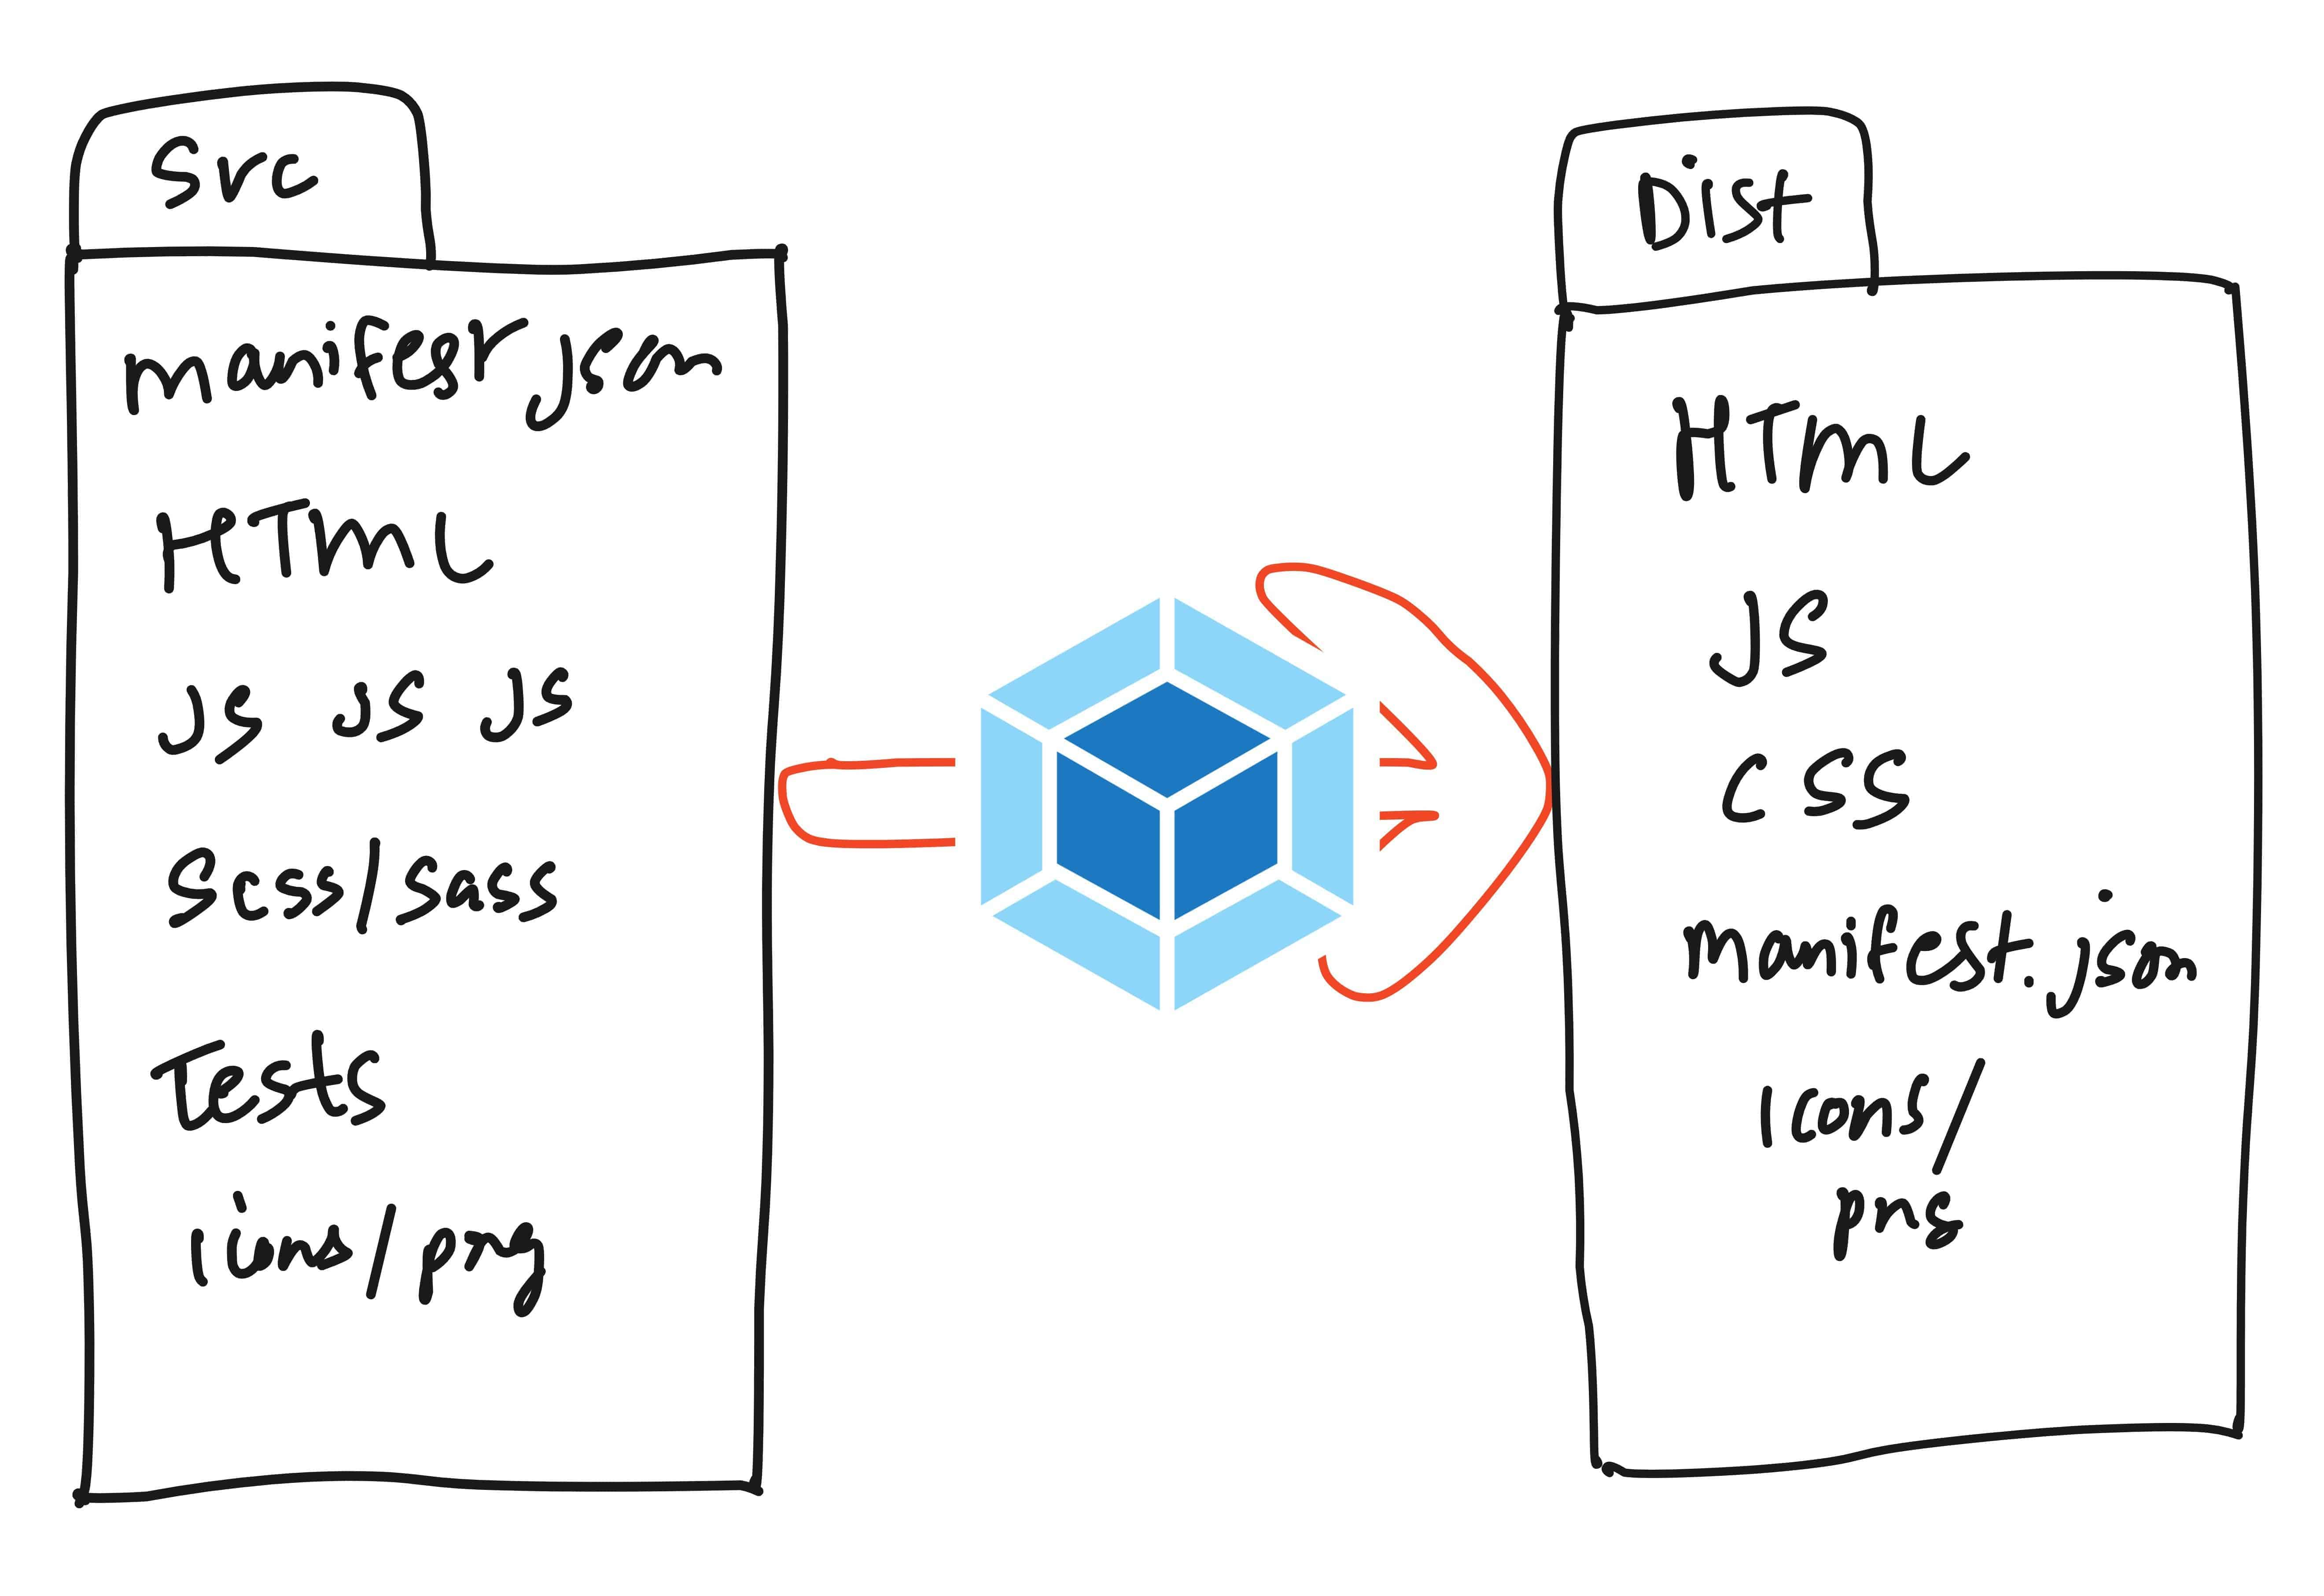 Src
manifest json
HTML
JS JS JS
Scss/sass
Tests
icons/png
Dist
HTML
JS
CSS
manifest.json
Icons/
png